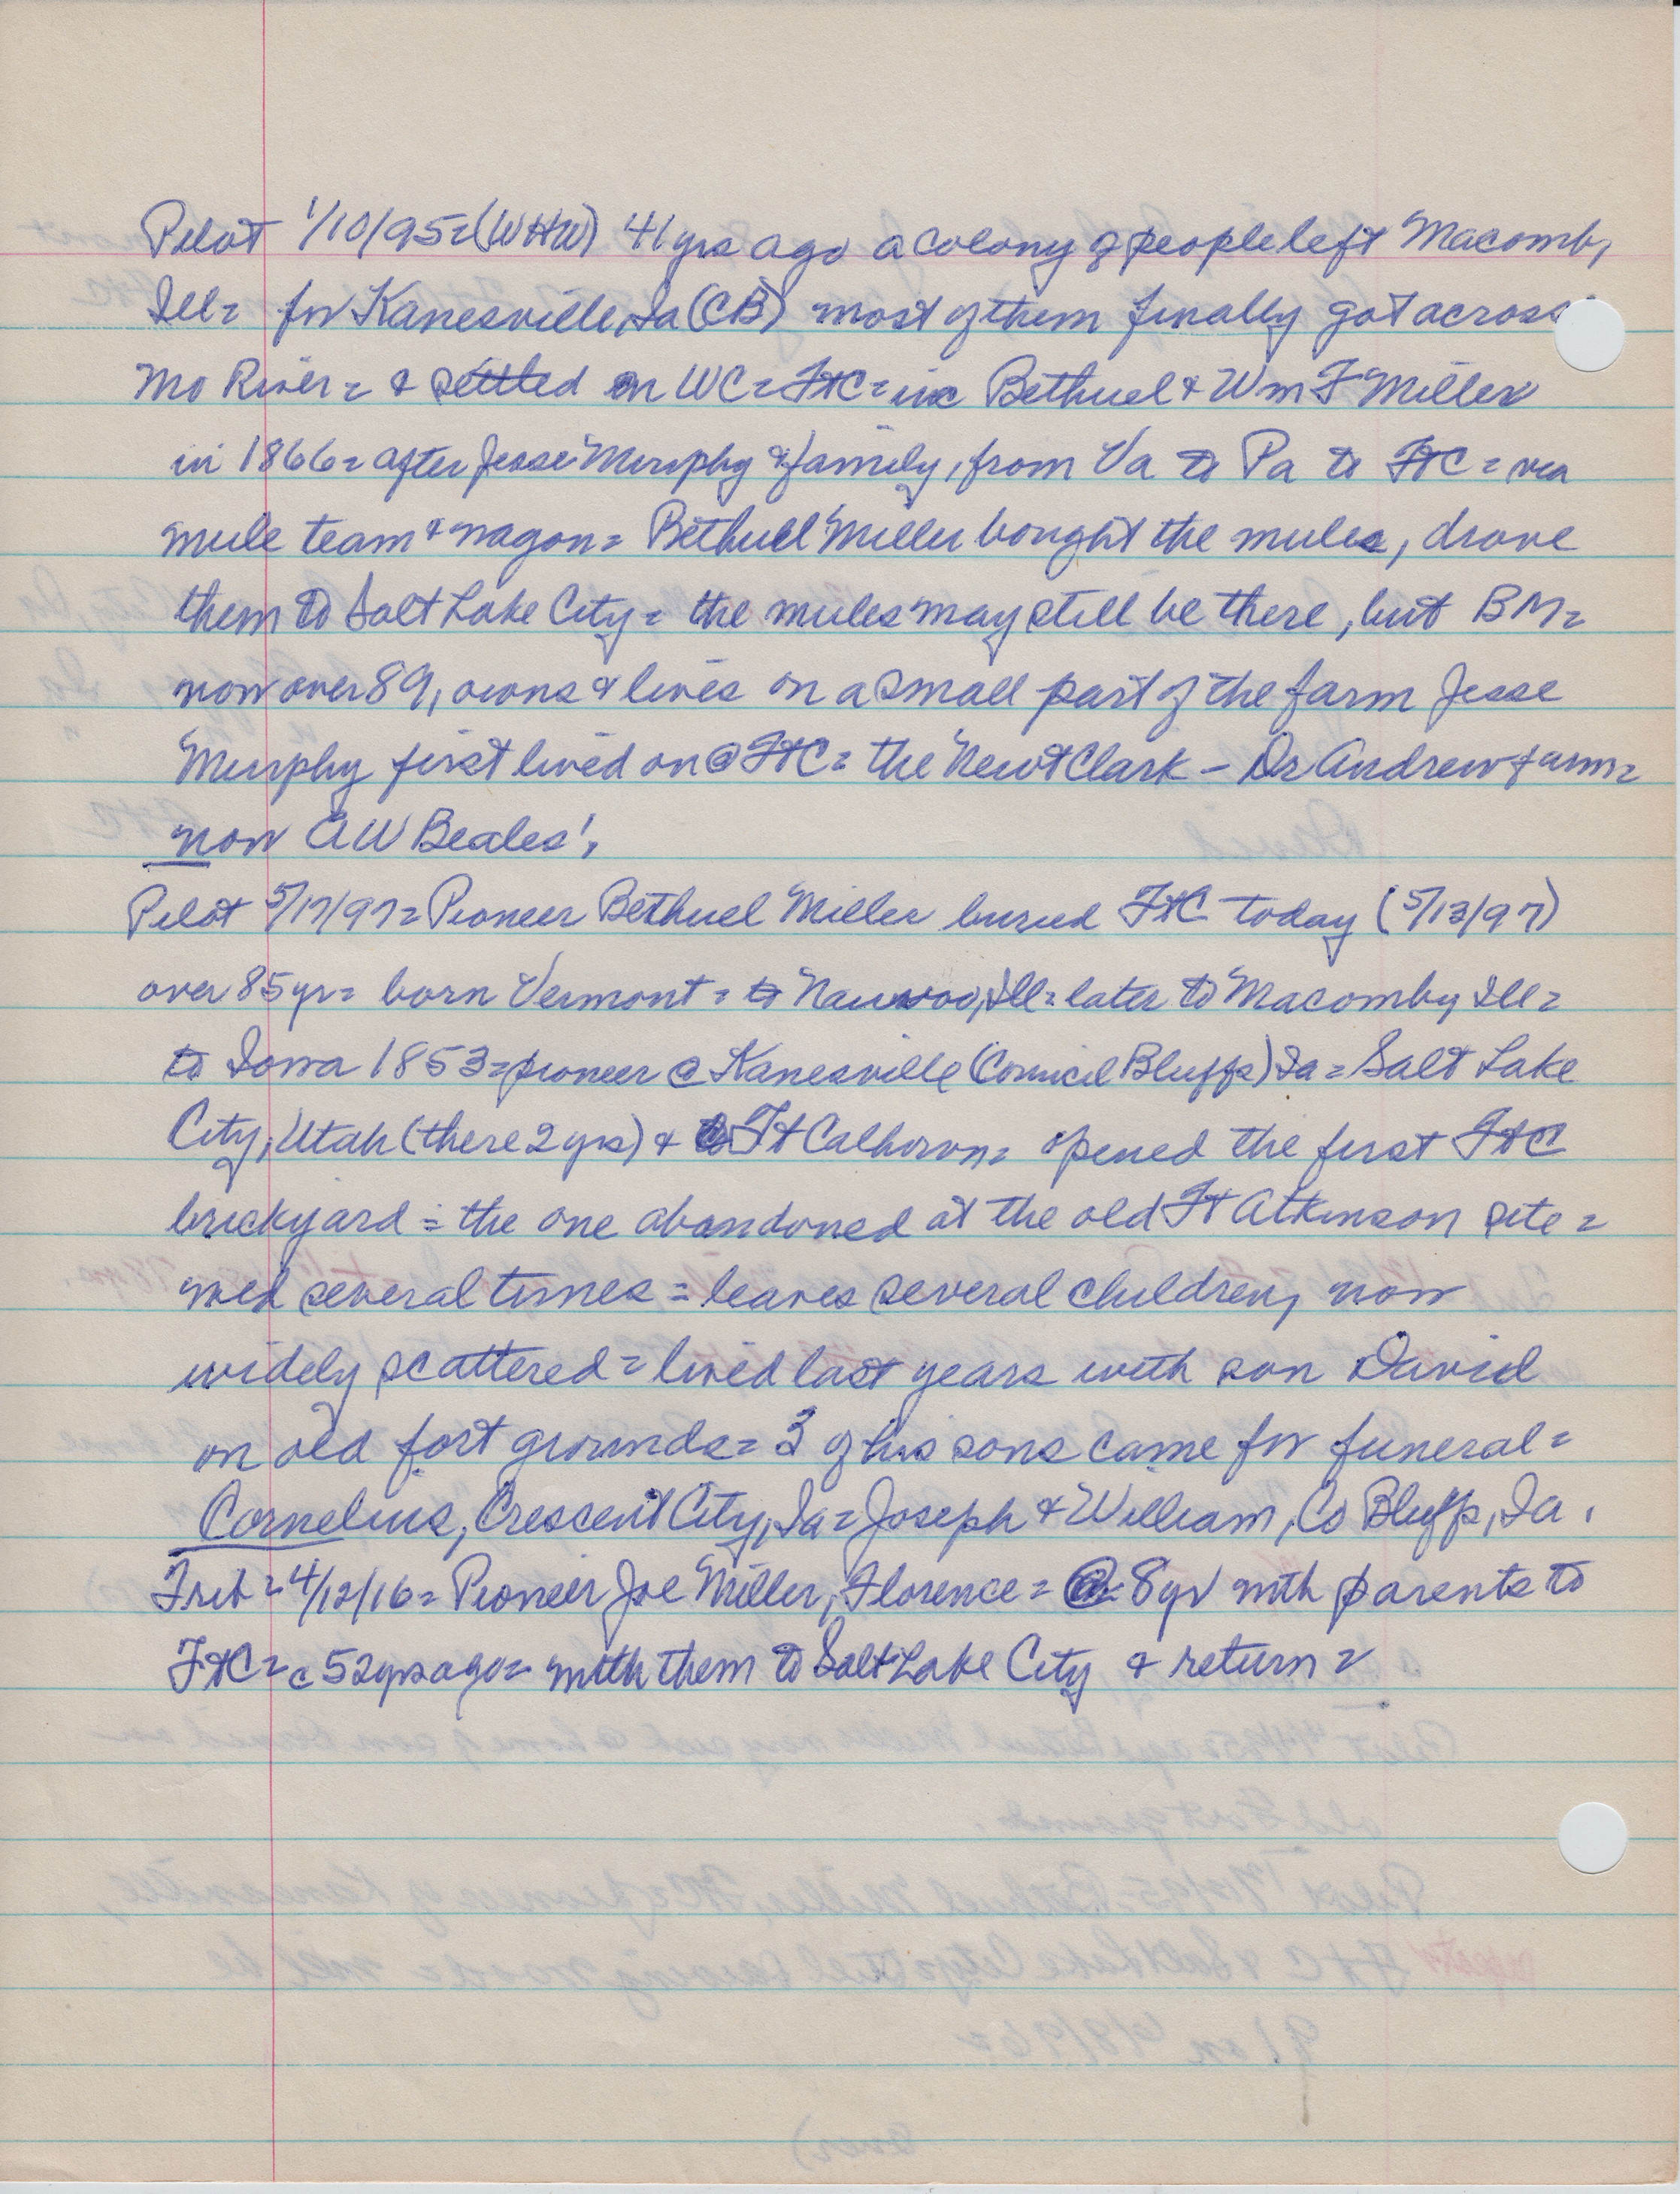 Pilot 1/10/95= (WHW) 41 yrs ago a colony of people left Macomb,
Ill= for Kanesville, Ia (CB) most of them finally got across
Mo River= & settled in WC= FtC= inc Bethuel & Wm F Miller
in 1866= after Jesse Murphy & family, from Va to Pa to FtC= via
mule team & wagon= Bethuel Miller bought the mules, drove
them to Salt Lake City= the mules may still be there, but BM=
now over 89, owns & lives on a small part of the farm Jesse
Murphy first lived on @ FtC= the Newt Clark - Dr Andrew farm=
now AW Beales',
Pilot 5/17/97= Pioneer Bethuel Miller buried FtC today (5/13/97)
over 85yr= born Vermont= to Nauvoo, Ill= later to Macomby Ill=
to Iowa 1853= pioneer @ Kanesville (Council Bluffs) Ia= Salt Lake
City, Utah (there 2 yrs) & to Ft Calhoun= opened the first FtC
brickyard= the one abandoned at the old Ft Atkinson site=
med several times= leaves several children, now
widely scattered= lived last years with son David
on old fort grounds= 3 of his sons came for funeral=
Cornelius, Crescent City, Ia= Joseph & William, Co Bluffs, Ia.
Trib= 4/12/16= Pioneer Joe Miller, Florence= @ 8yr with parents to
FtC= c 52yrs ago= with them to Salt Lake City & return=